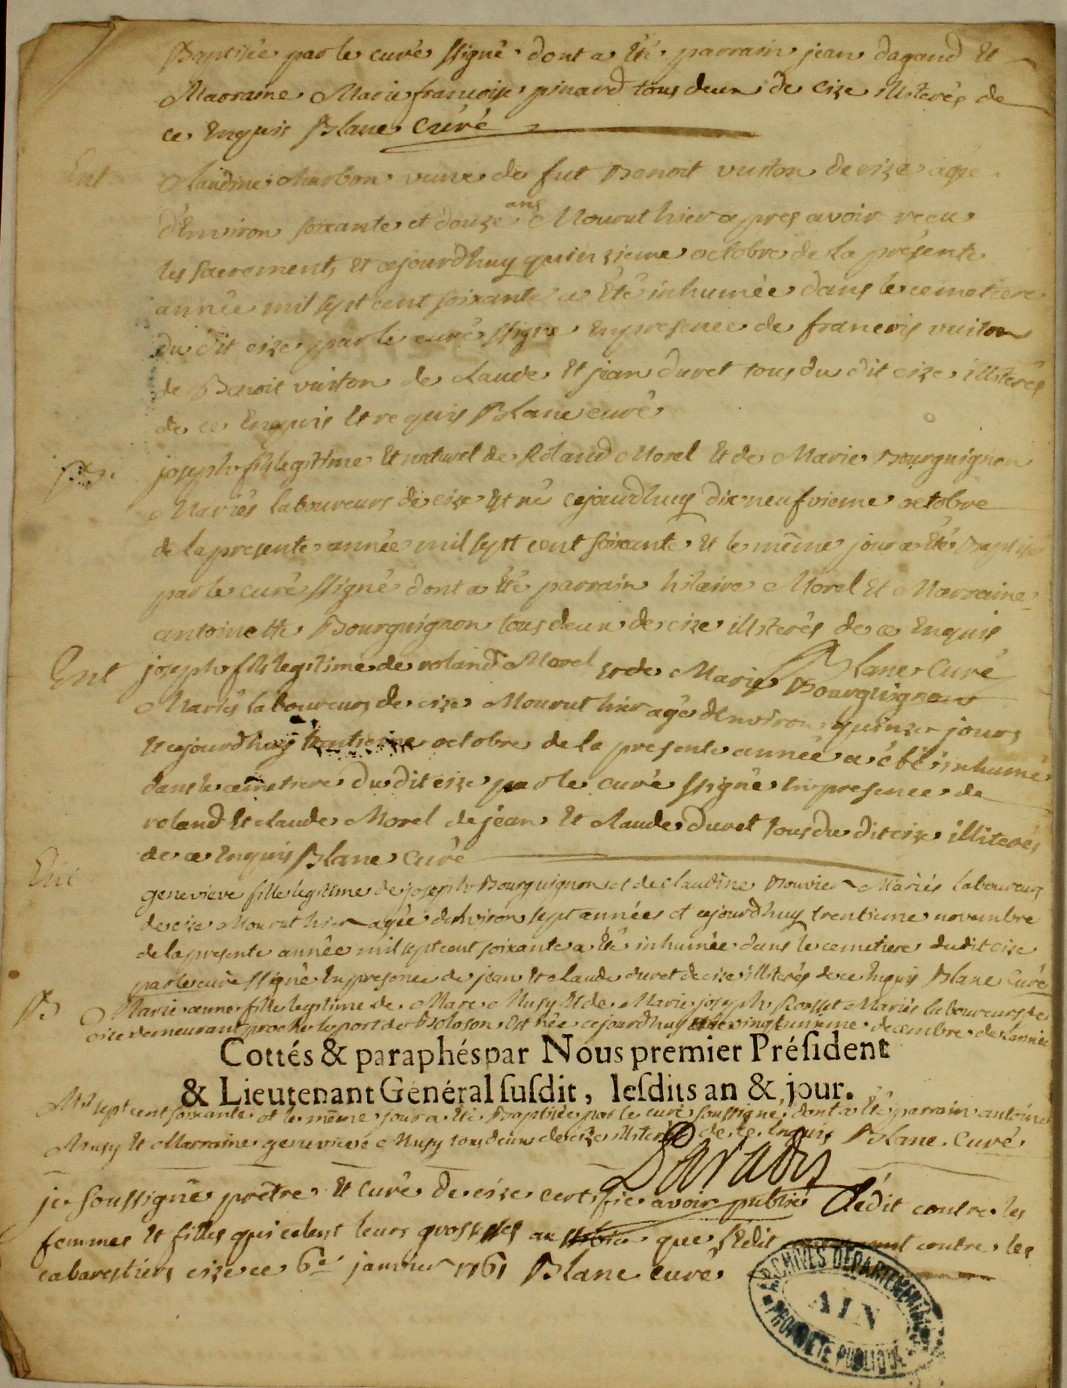 Baptisée par le curé ssigné dont a été parrain jean dagand et
Marraine Marie francoise pinard tous deux de cize illiterés de
ce Enquis Blanc Curé
Ent
Claudine Charbon veuve de fut Benoit vuiton de cize agée
d'Environ soixante et douze ans Mourut hier apres avoir recu
les sacrements et cejourdhuy quinzieme octobre de la présente
année mil sept cent soixante a été inhumée dans le cemetiere
du dit cize par le curé ssigné Enpresence de francois vuiton
de Benoit vuiton de claude Et jean duret tous du dit cize illiterés
de ce Enquis Et requis Blanc curé
joseph fils legitime Et naturel de Roland Morel Et de Marie Bourguignon
Mariés laboureurs de cize Est né cejourdhuy dixneufvieme octobre
de la presente année mil sept cent soixante Et le même jour a été Baptisé
par le curé ssigné dont a été parrain hilaire Morel Et Marraine
antoinette Bourguignon tous deux de cize illiterés de ce Enquis
Blanc Curé
Ent
joseph fils legitime de roland Morel Et de Marie Bourguignon
Mariés laboureurs de cize Mourut hier agé d'Environ quinze jours
Et cejourdhuy octobre de la presente année a été inhumé
dans le cemetiere du dit cize par le curé ssigné En presence de
roland Et claude Morel de jean Et claude duret tous du dit cize illiterés
de ce Enquis Blanc Curé
Ent
genevieve fille legitime de joseph Bourguignon et de claudine Bouvier Mariés laboureurs
de cize Mourut hier agée denviron sept années et cejourdhuy trentieme novembre
de la presente année mil sept cent soixante a été inhumée dans le cemetiere dudit cize
par le curé ssigné En presence de jean Et claude duret de cize illiterés de ce Enquis Blanc Curé
B
Marie anne fille legitime de Marc Musy Et de Marie joseph Rousset Mariés laboureurs de
cize demeurant proche le port de Boloson Est née cejourdhuy vingt unieme decembre de l'année
Cottés & paraphés par Nous premier Président
& Lieutenant Général susdit, lesdits an & jour.
Mil sept cent soixante et le même jour a été Baptisée par le curé soussigné dont a été parrain antoine
Musy Et Marraine genevieve Musy tous deux de cize illiterés de ce Enquis Blanc Curé
Paradis
je soussigné prêtre Et curé de cize certifie avoir publié l'édit contre les
femmes Et filles qui celent leurs grossesses que l'Edit contre les
cabarestiers cize ce 6e janvier 1761 Blanc curé
ARCHIVES DÉPARTEMENTALES
AIN
PROPRIÉTÉ PUBLIQUE